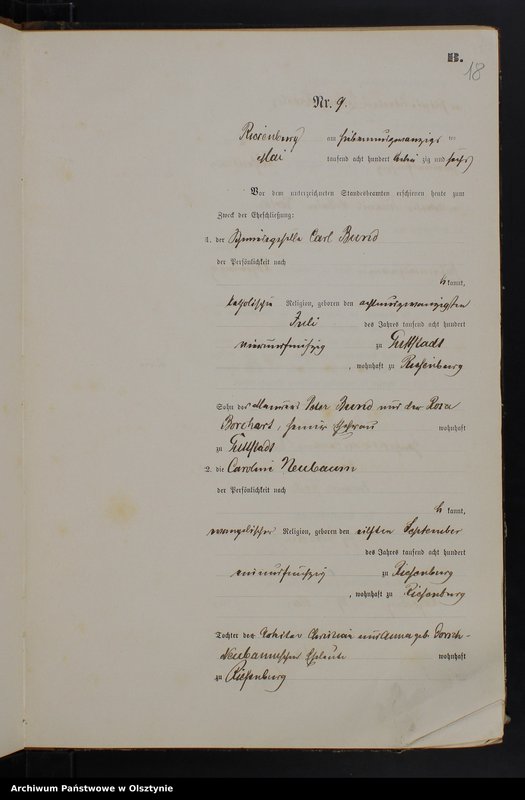 B.
18
Nr. 9.
Riesenburg am siebenundzwanzigsten
Mai tausend acht hundert siebenzig und sechs
Vor dem unterzeichneten Standesbeamten erschienen heute zum
Zweck der Eheschließung:
1. der Schmiedegeselle Carl Bund
der Persönlichkeit nach
bekannt,
katholischer Religion, geboren den achtundzwanzigsten
Juli des Jahres tausend acht hundert
vierundfünfzig zu Guttstadt
, wohnhaft zu Riesenburg
Sohn des Maurers Peter Bund und der Rosa
Borchart, seiner Ehefrau wohnhaft
zu Guttstadt
2. die Caroline Neubaum
der Persönlichkeit nach
bekannt,
evangelischer Religion, geboren den eilften September
des Jahres tausend acht hundert
einundfünfzig zu Riesenburg
, wohnhaft zu Riesenburg
Tochter der Christian und Anna geb. Dorsch-
Neubaumschen Eheleute wohnhaft
zu Riesenburg
Archiwum Państwowe w Olsztynie